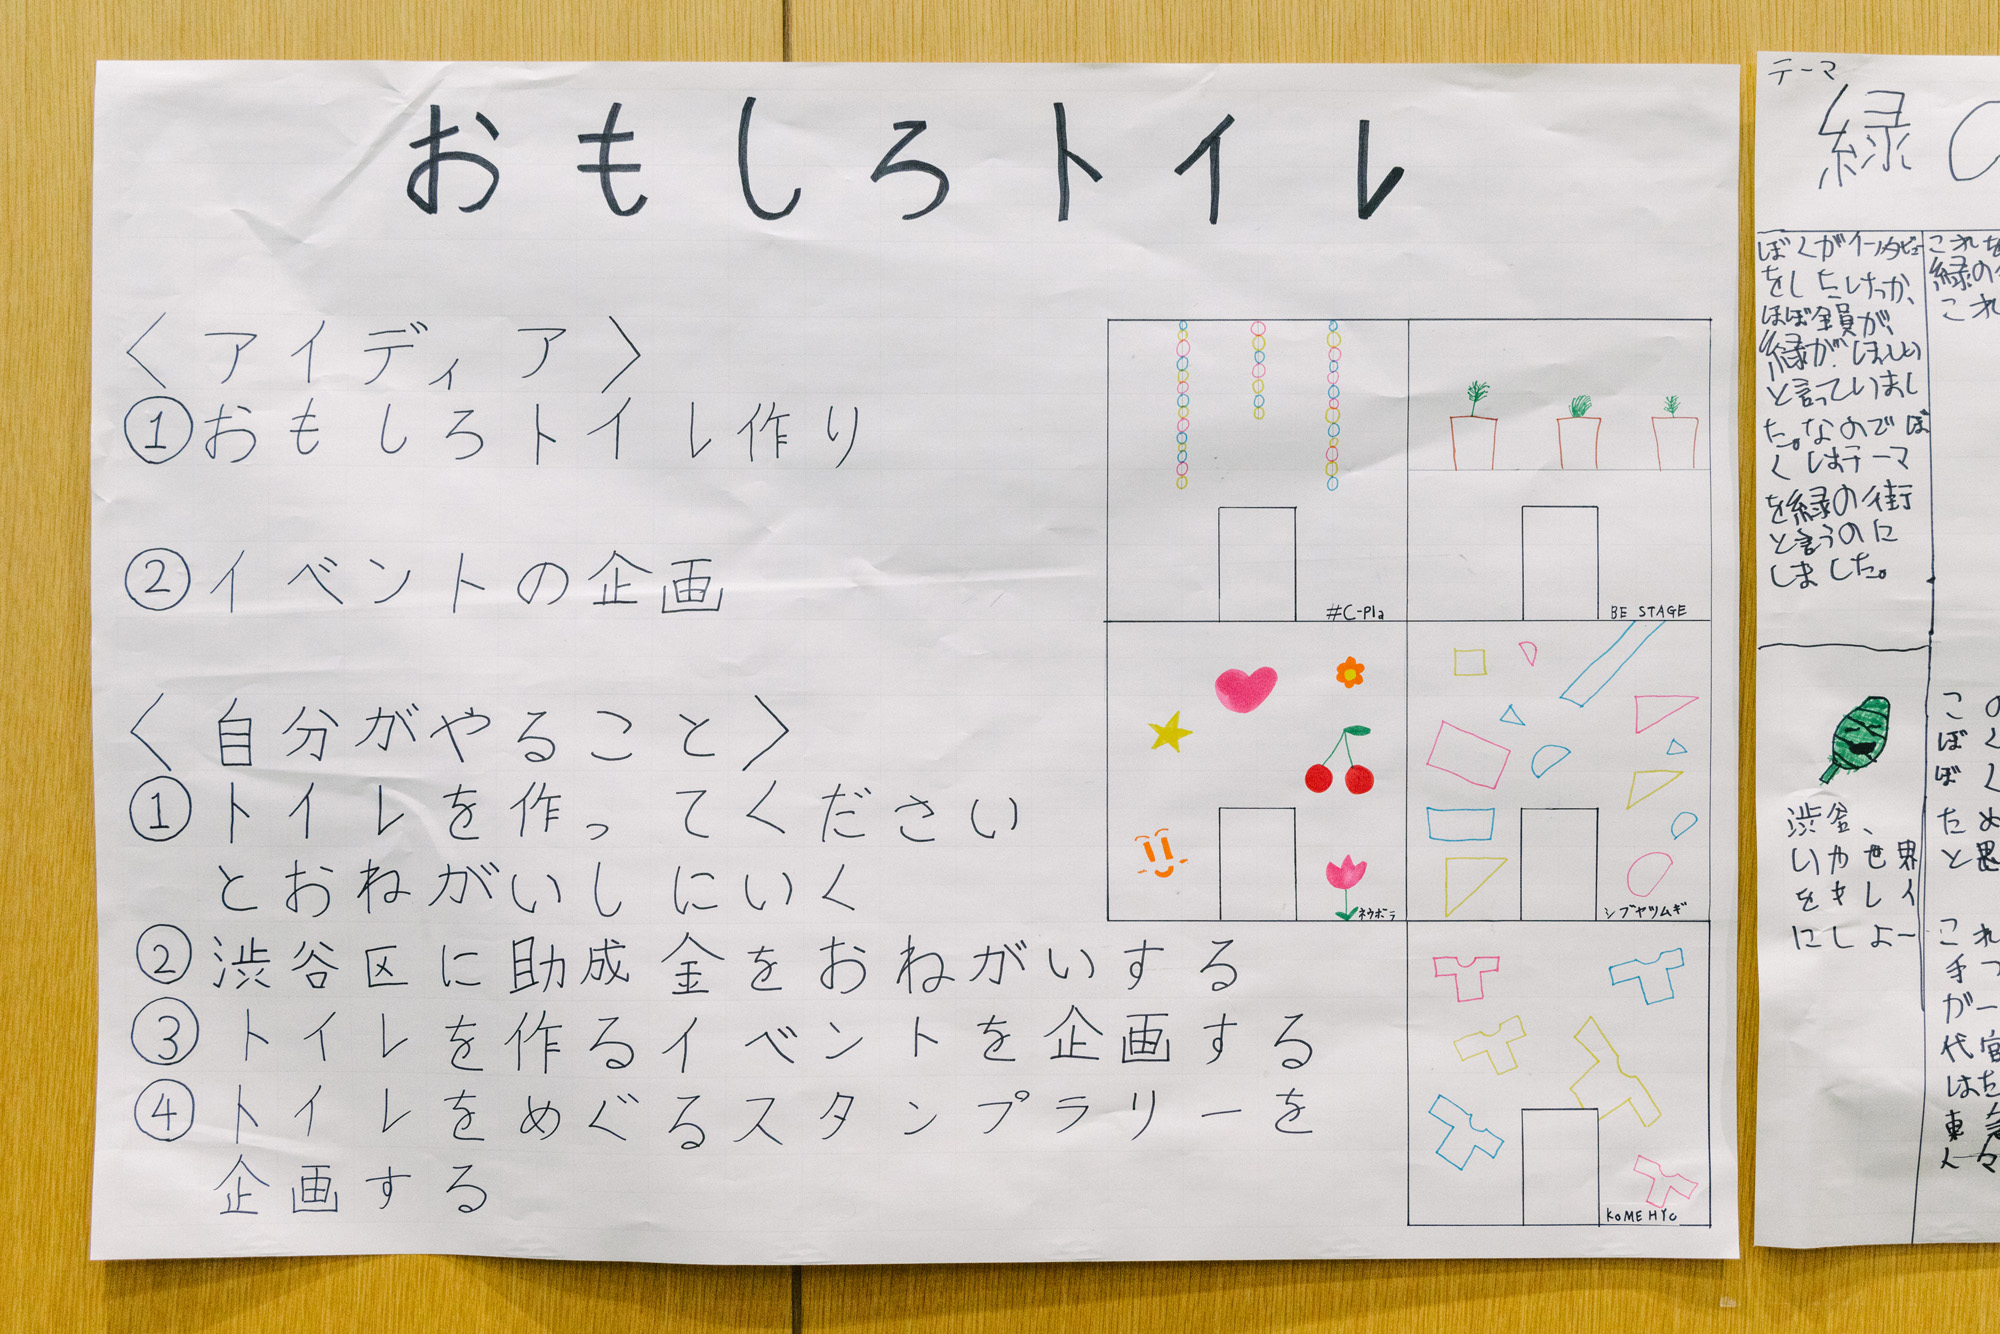 おもしろトイレ
〈アイディア〉
①おもしろトイレ作り
②イベントの企画
〈自分がやること〉
①トイレを作ってください
とおねがいしにいく
②渋谷区に助成金をおねがいする
③トイレを作るイベントを企画する
④トイレをめぐるスタンプラリーを
企画する
#C-pla
BE STAGE
ネウボラ
シブヤツムギ
KOMEHYO
テーマ
緑の
ぼくがインタビュー
をしたけっか、
ほぼ全員が、
緑がほしい
と言っていまし
た。なのでぼ
くはテーマ
を緑の街
と言うのに
しました。
渋谷、
いや世界
をキレイ
にしよー
これを
緑の
これ
この
ぼく
ぼく
ため
と思
これ
手つ
がー
代官
はた
東急
人々